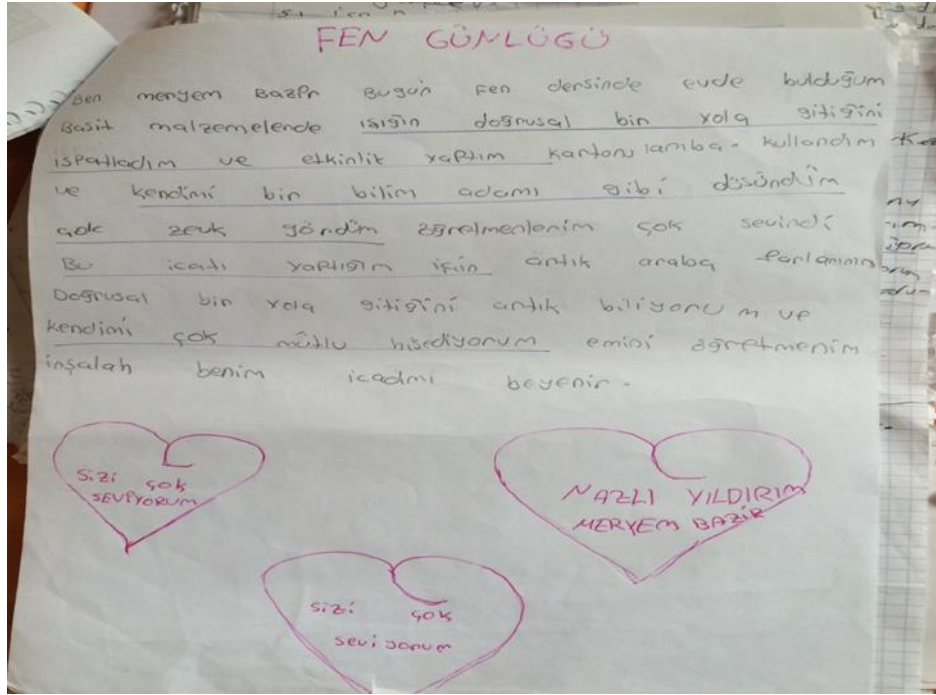 FEN GÜNLÜGÜ
Ben meryem BAZİR Bugün Fen dersinde evde bulduğum
Basit malzemelerde ışığın doğrusal bir yola gitiğini
ispatladım ve etkinlik yaptım karton, lamba. kullandım
ve kendimi bir bilim adamı gibi düsündüm
çok zevk gördüm öğretmenlerim çok sevindi
Bu icatı yaptığım için artık araba farlarının
Doğrusal bir yola gitiğini artık biliyorum ve
kendimi çok mûtlu hisediyorum emini öğretmenim
inşalah benim icadmı beyenir.
Sizi çok
SEVİYORUM
NAZLI YILDIRIM
MERYEM BAZİR
sizi çok
seviyorum